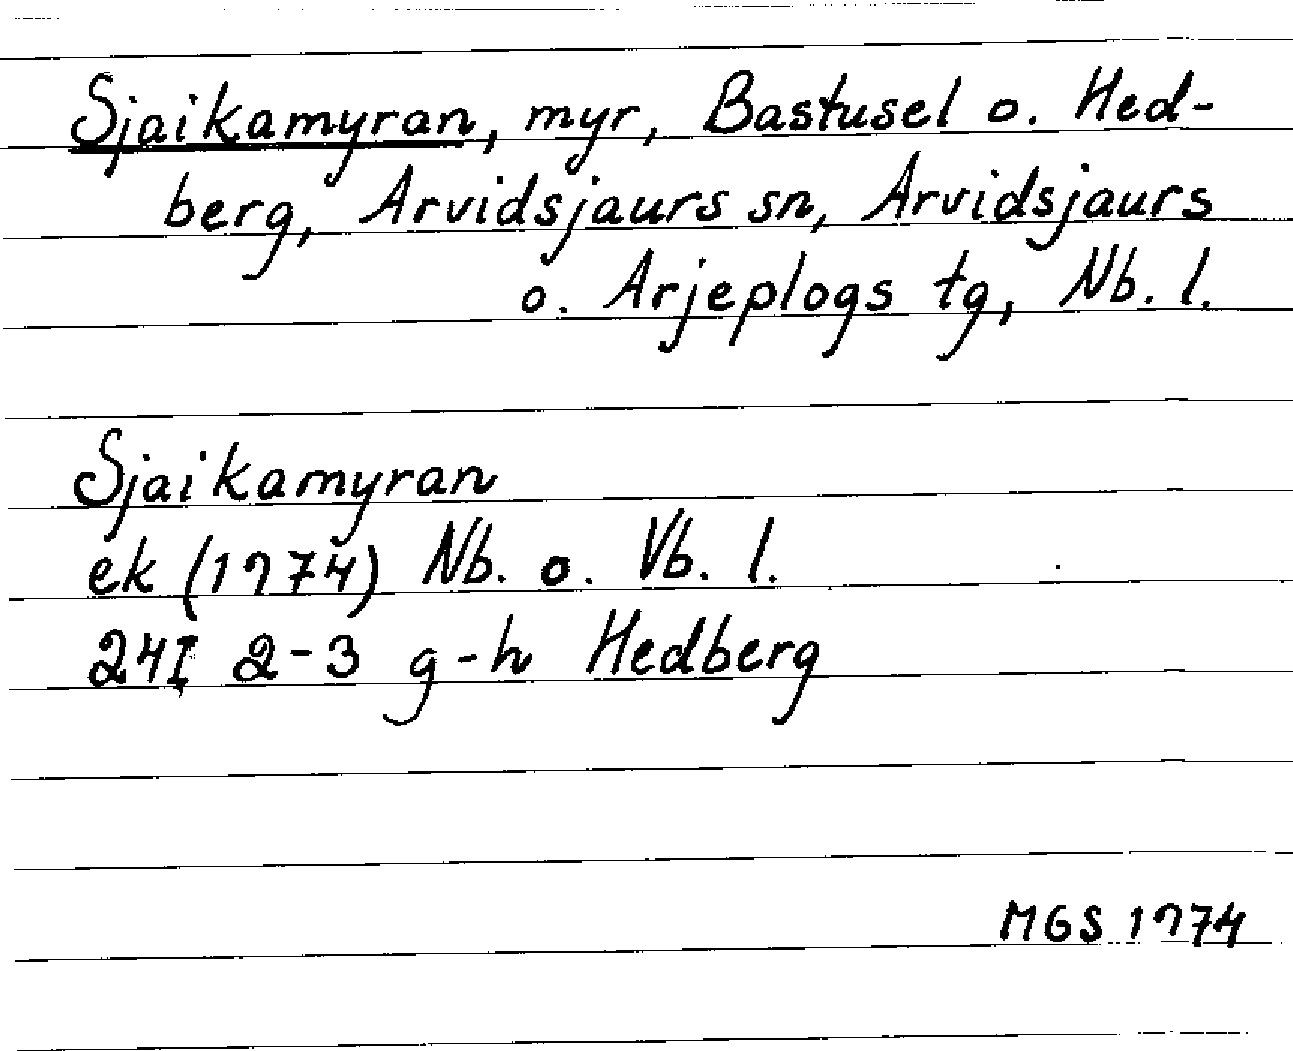 Sjaikamyran, myr, Bastusel o. Hed-
berg, Arvidsjaurs sn, Arvidsjaurs
o. Arjeplogs tg, Nb. l.
Sjaikamyran
ek (1974) Nb. o. Vb. l.
24I 2-3 g-h Hedberg
MGS 1974